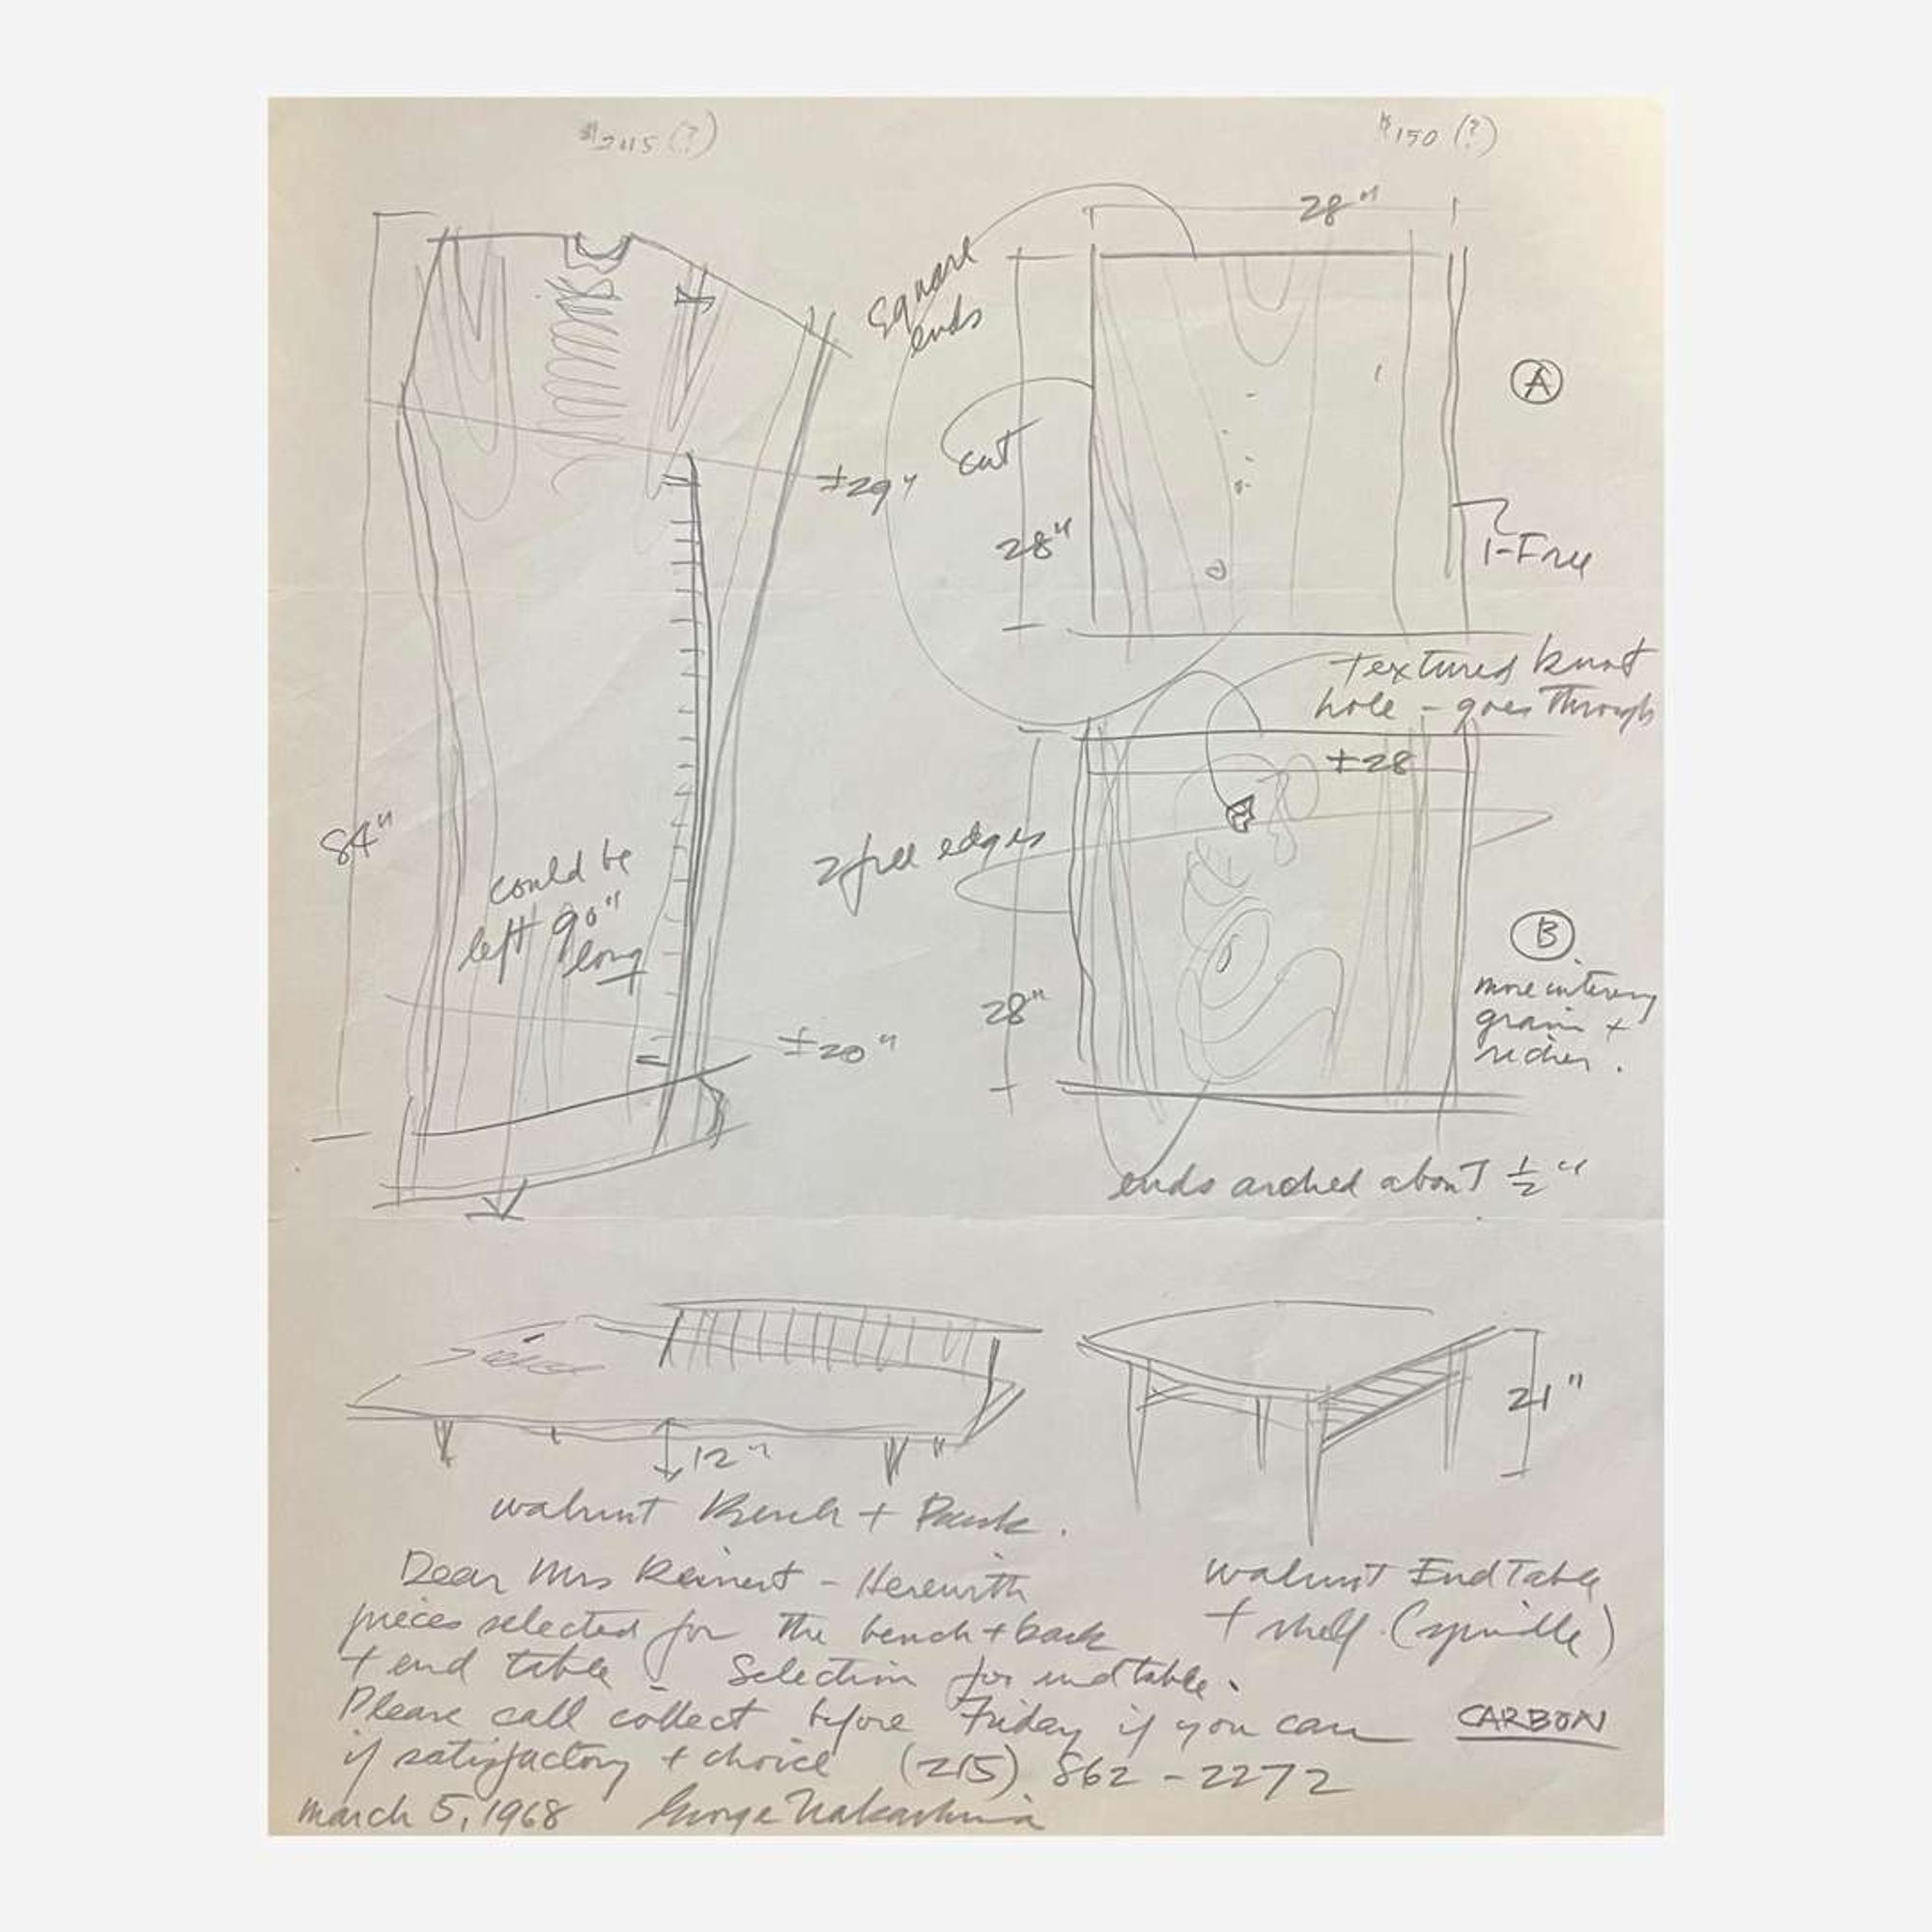 (?)
$150 (?)
28"
Square
ends
A
cut
±29"
28"
1-Free
Textured knot
hole - goes Through
±28
84"
2 free edges
could be
left 90"
long
B
28"
more
grain +
richer.
±20"
ends arched about ½"
21"
12"
walnut Bench + Back.
Dear Mrs Reinert - Herewith
pieces selected for The bench + back
+ end table - Selection for end table.
Please call collect before Friday if you can
if satisfactory + choice (215) 862-2272
march 5, 1968 George Nakashima
walnut End Table
+ shelf. (spindle)
CARBON